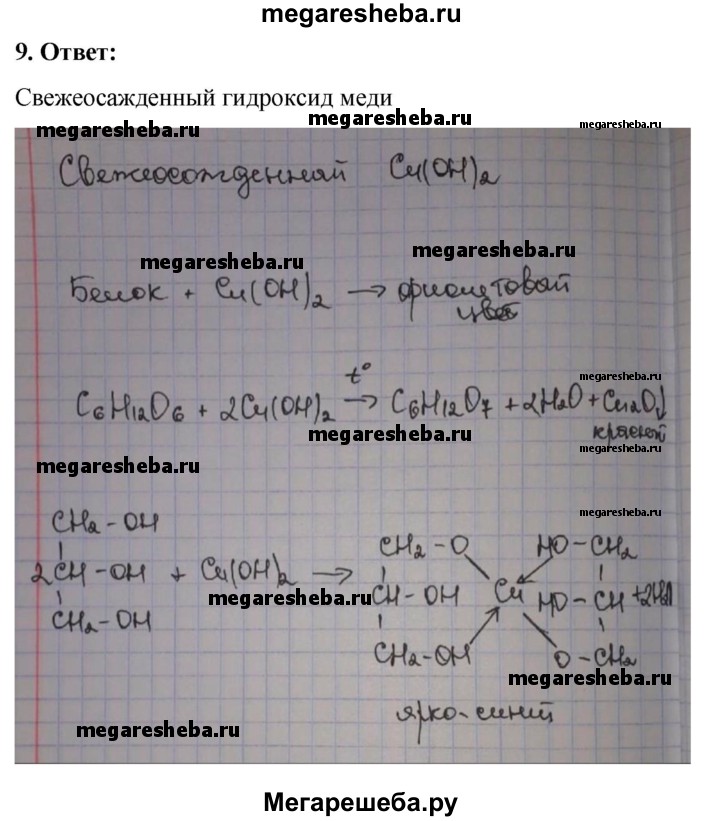 megaresheba.ru
9. Ответ:
Свежеосажденный гидроксид меди
megaresheba.ru
megaresheba.ru
megaresheba.ru
Свежеосожденный Cu(OH)2
megaresheba.ru
megaresheba.ru
Белок + Cu(OH)2 → фиолетовый
цвет
megaresheba.ru
C6H12O6 + 2Cu(OH)2 t° → C6H12O7 + 2H2O + Cu2O↓
красный
megaresheba.ru
megaresheba.ru
megaresheba.ru
CH2 - OH CH2 - O HO - CH2
2CH - OH + Cu(OH)2 → CH - OH Cu HO - CH + 2H2O
megaresheba.ru
megaresheba.ru
CH2 - OH CH2 - OH O - CH2
megaresheba.ru
ярко-синий
megaresheba.ru
Мегарешеба.ру